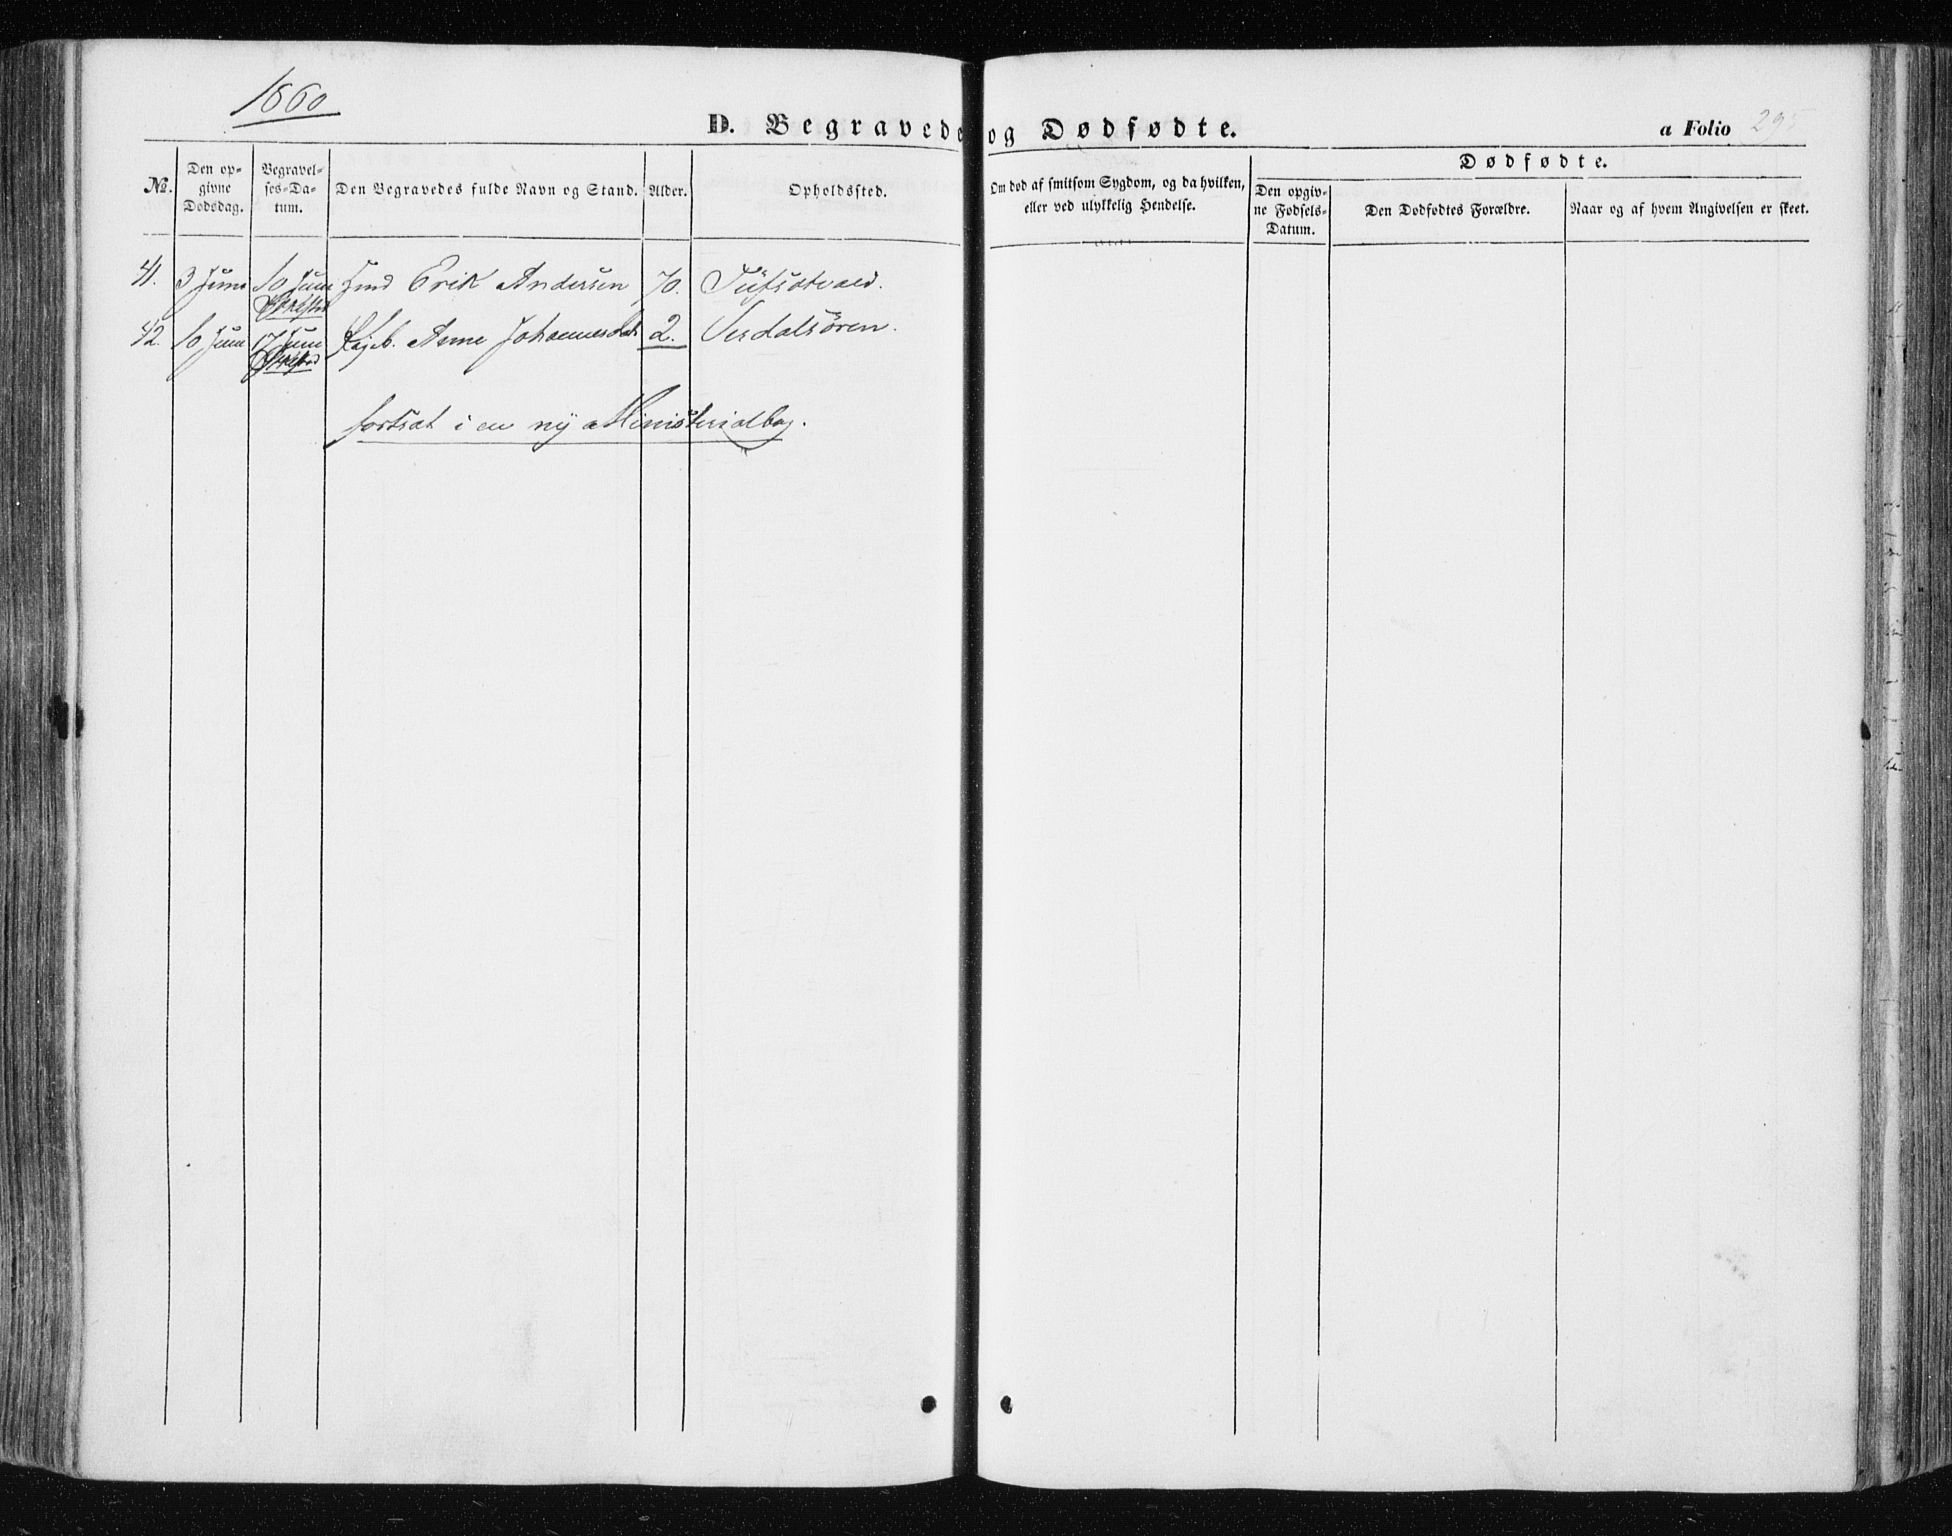 1860
D. Begravede og Dødfødte.
a Folio 295
No.
Den op-
givne
Dødsdag.
Begravel-
ses-Da-
tum.
Den Begravedes fulde Navn og Stand.
Alder.
Opholdssted.
Om død af smitsom Sygdom, og da hvilken,
eller ved ulykkelig Hendelse.
Dødfødte.
Den opgiv-
ne Fødsels-
Datum.
Den Dødfødtes Forældre.
Naar og af hvem Angivelsen er skeet.
41. 3 Juni 10 Juni Erik Andersen 70.
42. 10 Juni 17 Juni Anne Johannesdat 2. Verdalsören.
fortsat i en ny Ministerialbog.